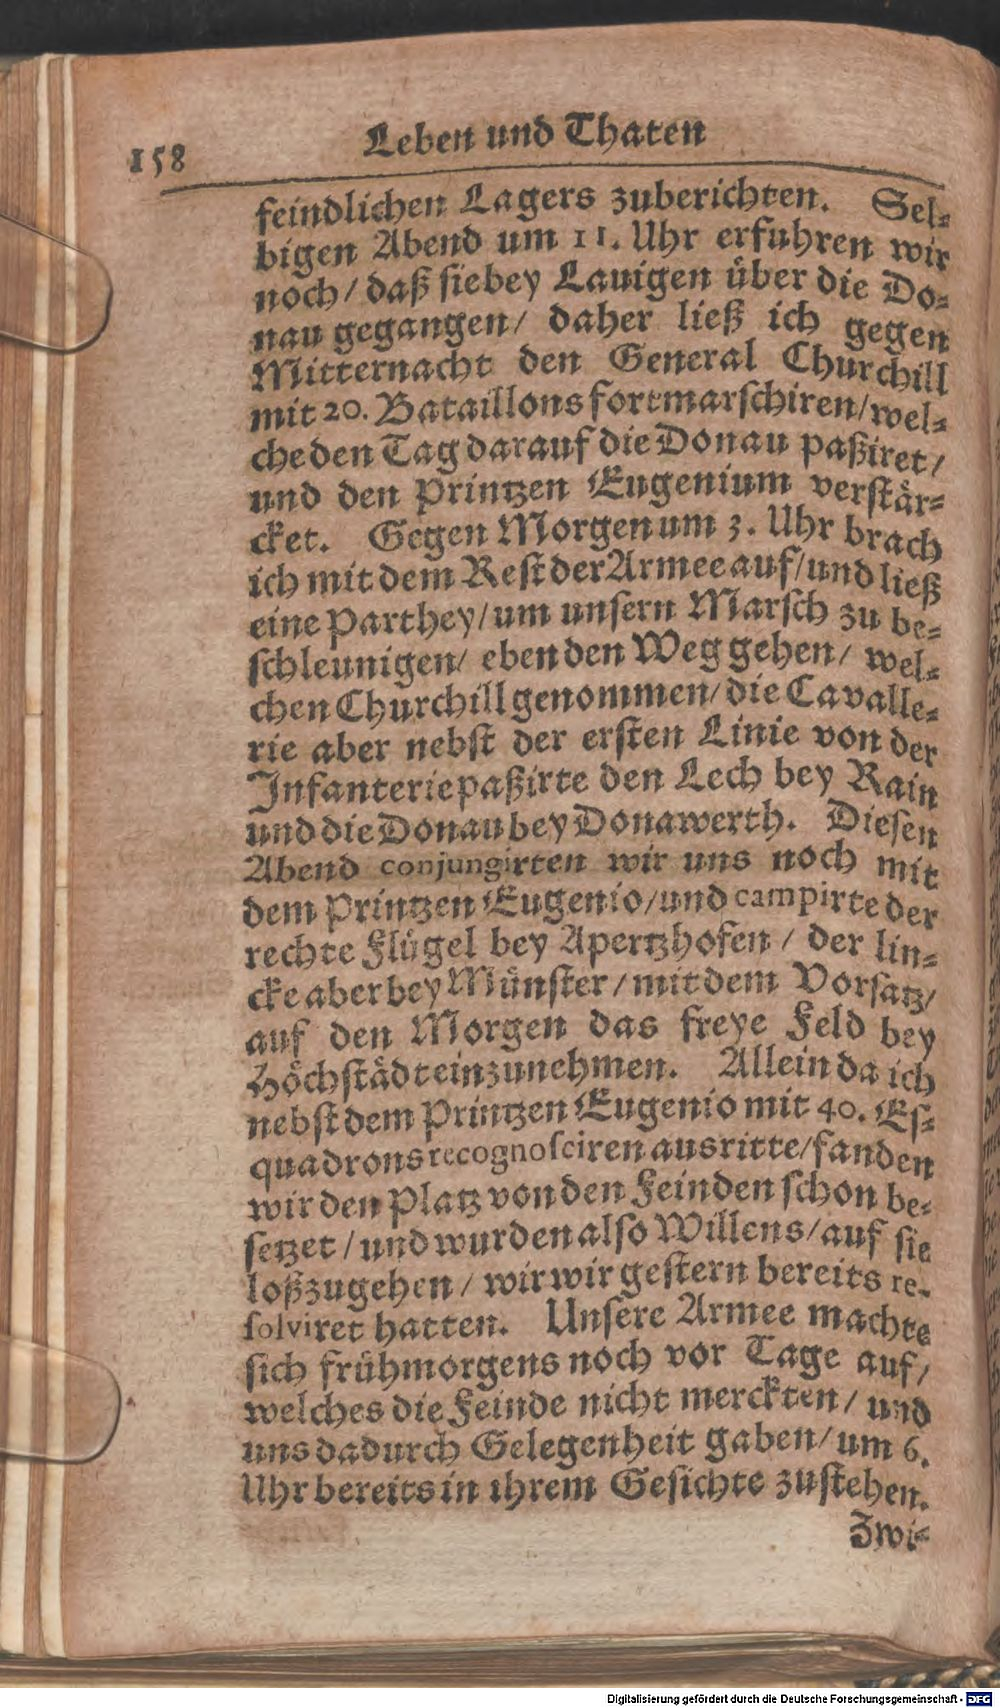 158 Leben und Thaten
feindlichen Lagers zuberichten. Sel⸗
bigen Abend um 11. Uhr erfuhren wir
noch/ daß sie bey Lauigen über die Do⸗
nau gegangen/ daher ließ ich gegen
Mitternacht den General Churchill
mit 20. Bataillons fortmarschiren/ wel⸗
che den Tag darauf die Donau paßiret/
und den Printzen Eugenium verstär⸗
cket. Gegen Morgen um 3. Uhr brach
ich mit dem Rest der Armee auf/ und ließ
eine Parthey/ um unsern Marsch zu be⸗
schleunigen/ eben den Weg gehen/ wel⸗
chen Churchill genommen/ die Cavalle⸗
rie aber nebst der ersten Linie von der
Infanterie paßirte den Lech bey Rain
und die Donau bey Donawerth. Diesen
Abend conjungirten wir uns noch mit
dem Printzen Eugenio/ und campirte der
rechte Flügel bey Apertzhofen / der lin⸗
cke aber bey Münster / mit dem Vorsatz/
auf den Morgen das freye Feld bey
Höchstädt einzunehmen. Allein da ich
nebst dem Printzen Eugenio mit 40. Es⸗
quadrons recognosciren ausritte/ fanden
wir den Platz von den Feinden schon be⸗
setzet / und wurden also Willens/ auf sie
loßzugehen / wir wir gestern bereits re-
solviret hatten. Unsere Armee machte
sich frühmorgens noch vor Tage auf/
welches die Feinde nicht merckten / und
uns dadurch Gelegenheit gaben/ um 6.
Uhr bereits in ihrem Gesichte zustehen.
Zwi⸗
Digitalisierung gefördert durch die Deutsche Forschungsgemeinschaft - DFG